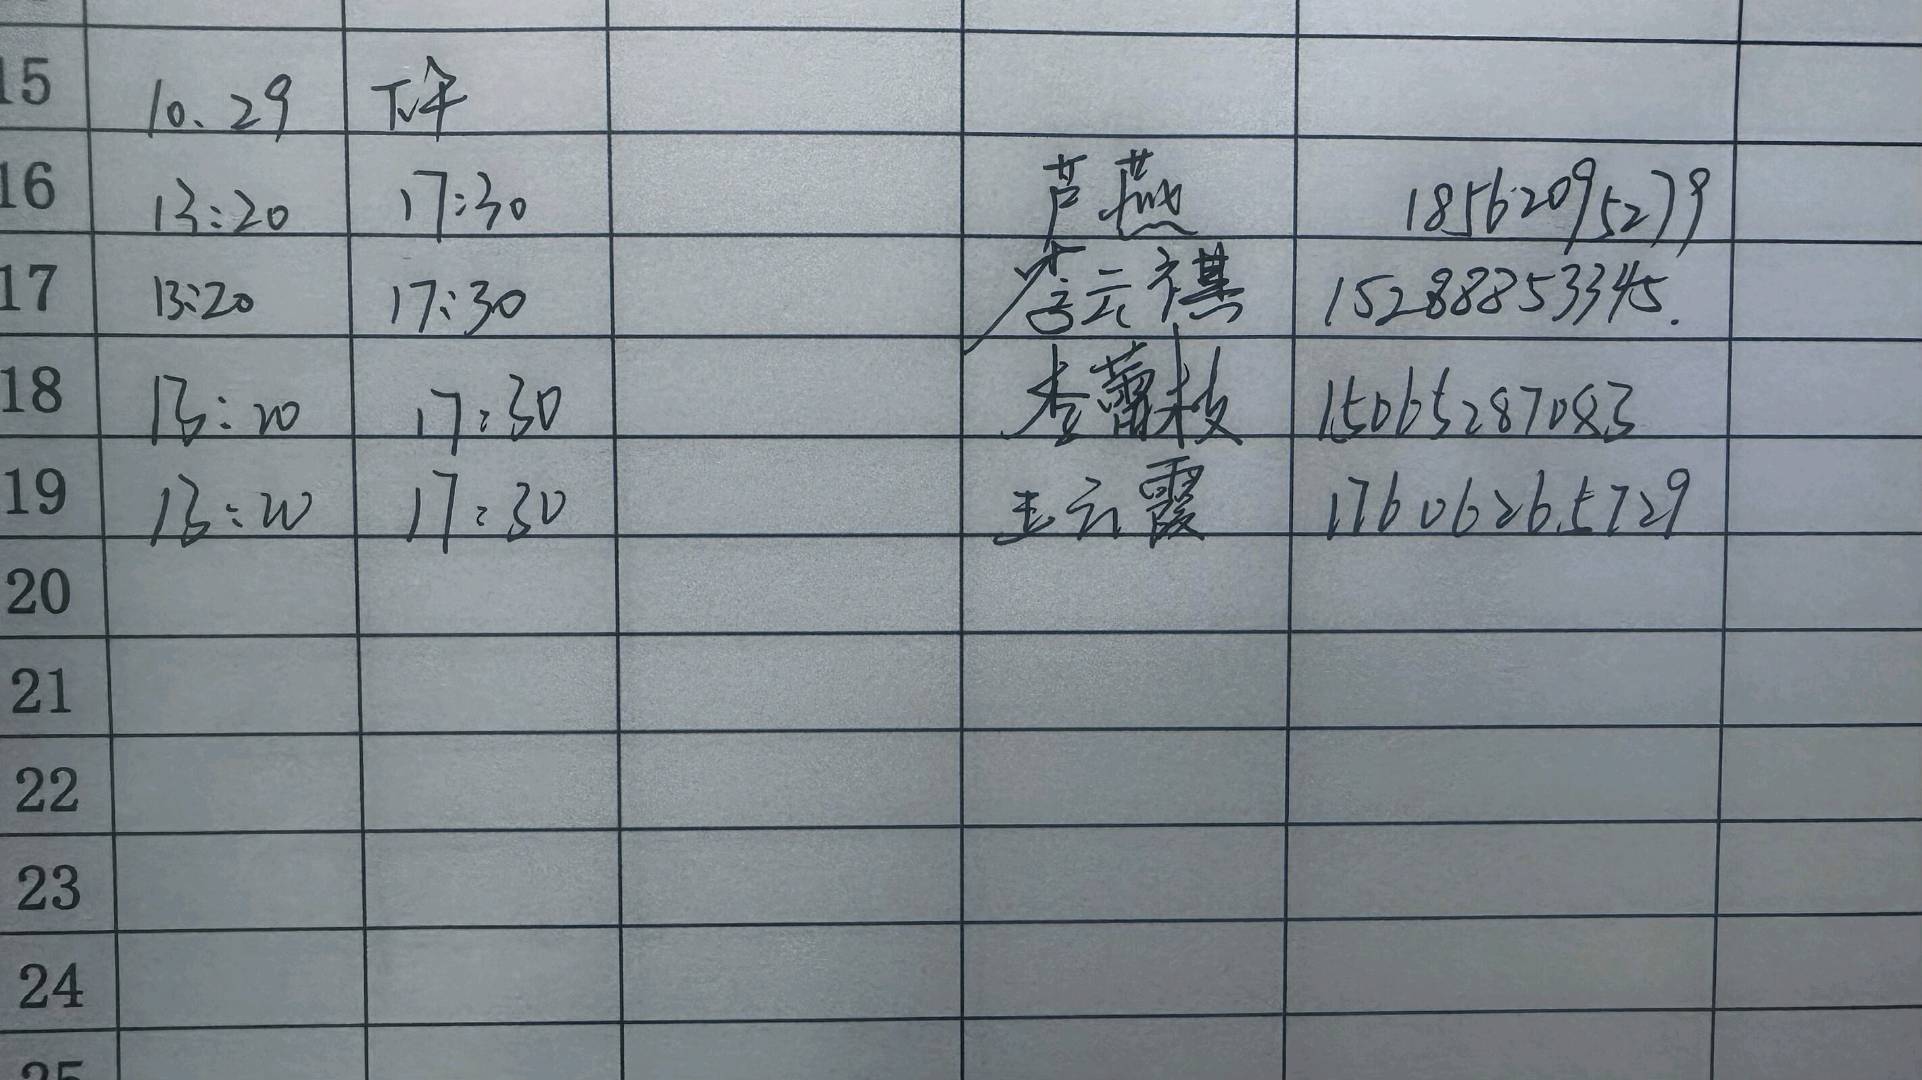 15 10.29 下午
16 13:20 17:30 芦燕 18562095279
17 13:20 17:30 李云祺 15288853345.
18 13:20 17:30 李蕾枝 15065287083
19 13:20 17:30 王云霞 17606265729
20
21
22
23
24
25